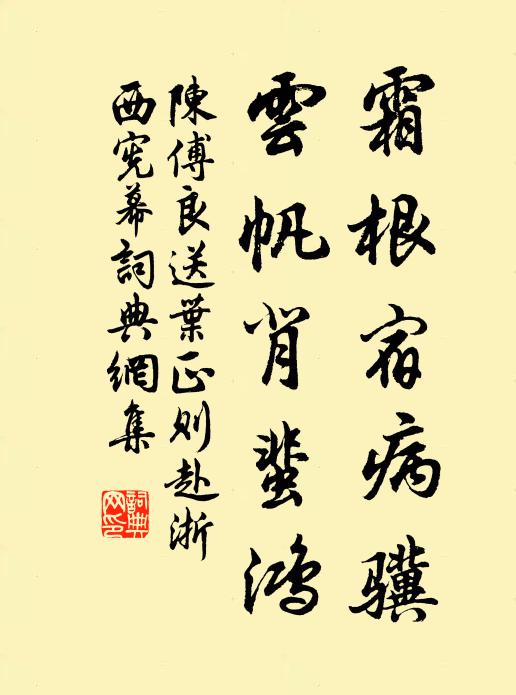 霜根宿病驥
雲帆背蜚鴻
陳傅良送葉正則赴浙
西憲幕詞典網集
詞典网印